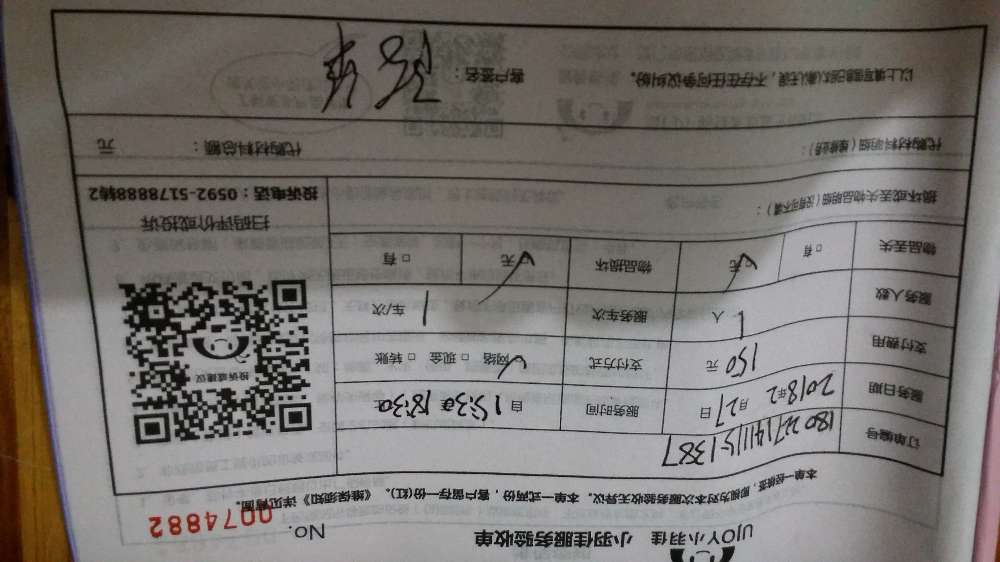 UJOY小羽佳 小羽佳服务验收单
No. 0074882
本单一经签签,即视为对本次服务验收无异议。本单一式两份,客户留存一份(红)。《维保须知》详见背面。
订单编号 180227141115-1387
服务日期 2018年2月27日 服务时间 自15:30至18:30
支付费用 150元 支付方式 网络 □现金 □转账
服务人数 1人 服务车次 1车/次
物品丢失 □有 无 物品损坏 无 □有
损坏或丢失物品明细(没有可不填):
代购材料明细(维修类): 代购材料总额: 元
以上填写情况已确认无误,不存在任何争议纠纷。 客户签名:
投诉或建议
扫码评价或投诉
投诉电话:0592-5178888转2